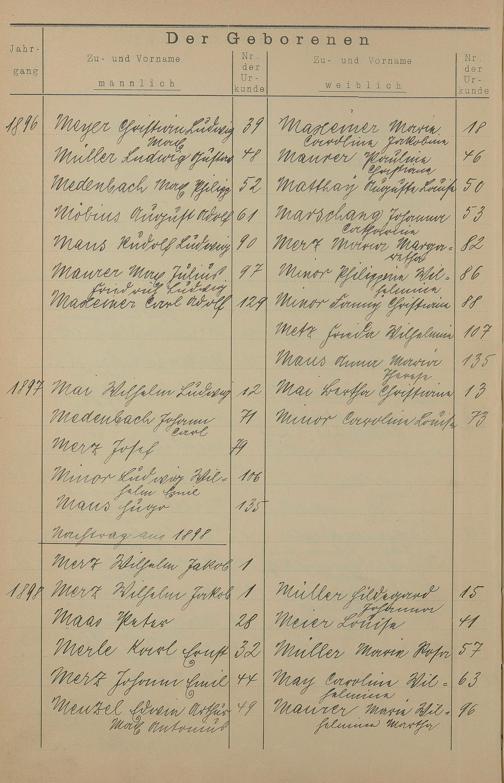 Der Geborenen
Jahr-
gang
Zu- und Vorname
männlich
Nr.
der
Ur-
kunde
Zu- und Vorname
weiblich
Nr.
der
Ur-
kunde
1896 Meyer Christian Ludwig 39 Maxeiner Maria 18
Max Caroline Jakobine
Müller Ludwig Gustav 48 Maurer Pauline 46
Christiane
Medenbach Max Philipp 52 Matthay Auguste Louise 50
Möbius August Adolf 61 Marschang Johanna 53
Catharina
Maus Rudolf Ludwig 90 Merz Maria Marga- 82
retha
Maurer Max Julius 97 Minor Philippine Wil- 86
Friedrich Ludwig helmine
Maxeiner Carl Adolf 129 Minor Fanny Christiane 88
Metz Frieda Wilhelmine 107
Maus Anna Maria 135
Therese
1897 Mai Wilhelm Ludwig 12 Mai Bertha Christiane 13
Medenbach Johann 71 Minor Caroline Louise 73
Carl
Merz Josef 79
Minor Ludwig Wil- 106
helm Emil
Maus Hugo 135
Nachtrag aus 1898
Merz Wilhelm Jakob 1
1898 Merz Wilhelm Jakob 1 Müller Hildegard 15
Johanna
Maas Peter 28 Meier Louise 41
Merle Karl Ernst 32 Müller Maria Rosa 57
Merz Johann Emil 44 May Caroline Wil- 63
helmine
Menzel Edwin Arthur 49 Maurer Maria Wil- 96
Max Antonius helmine Martha